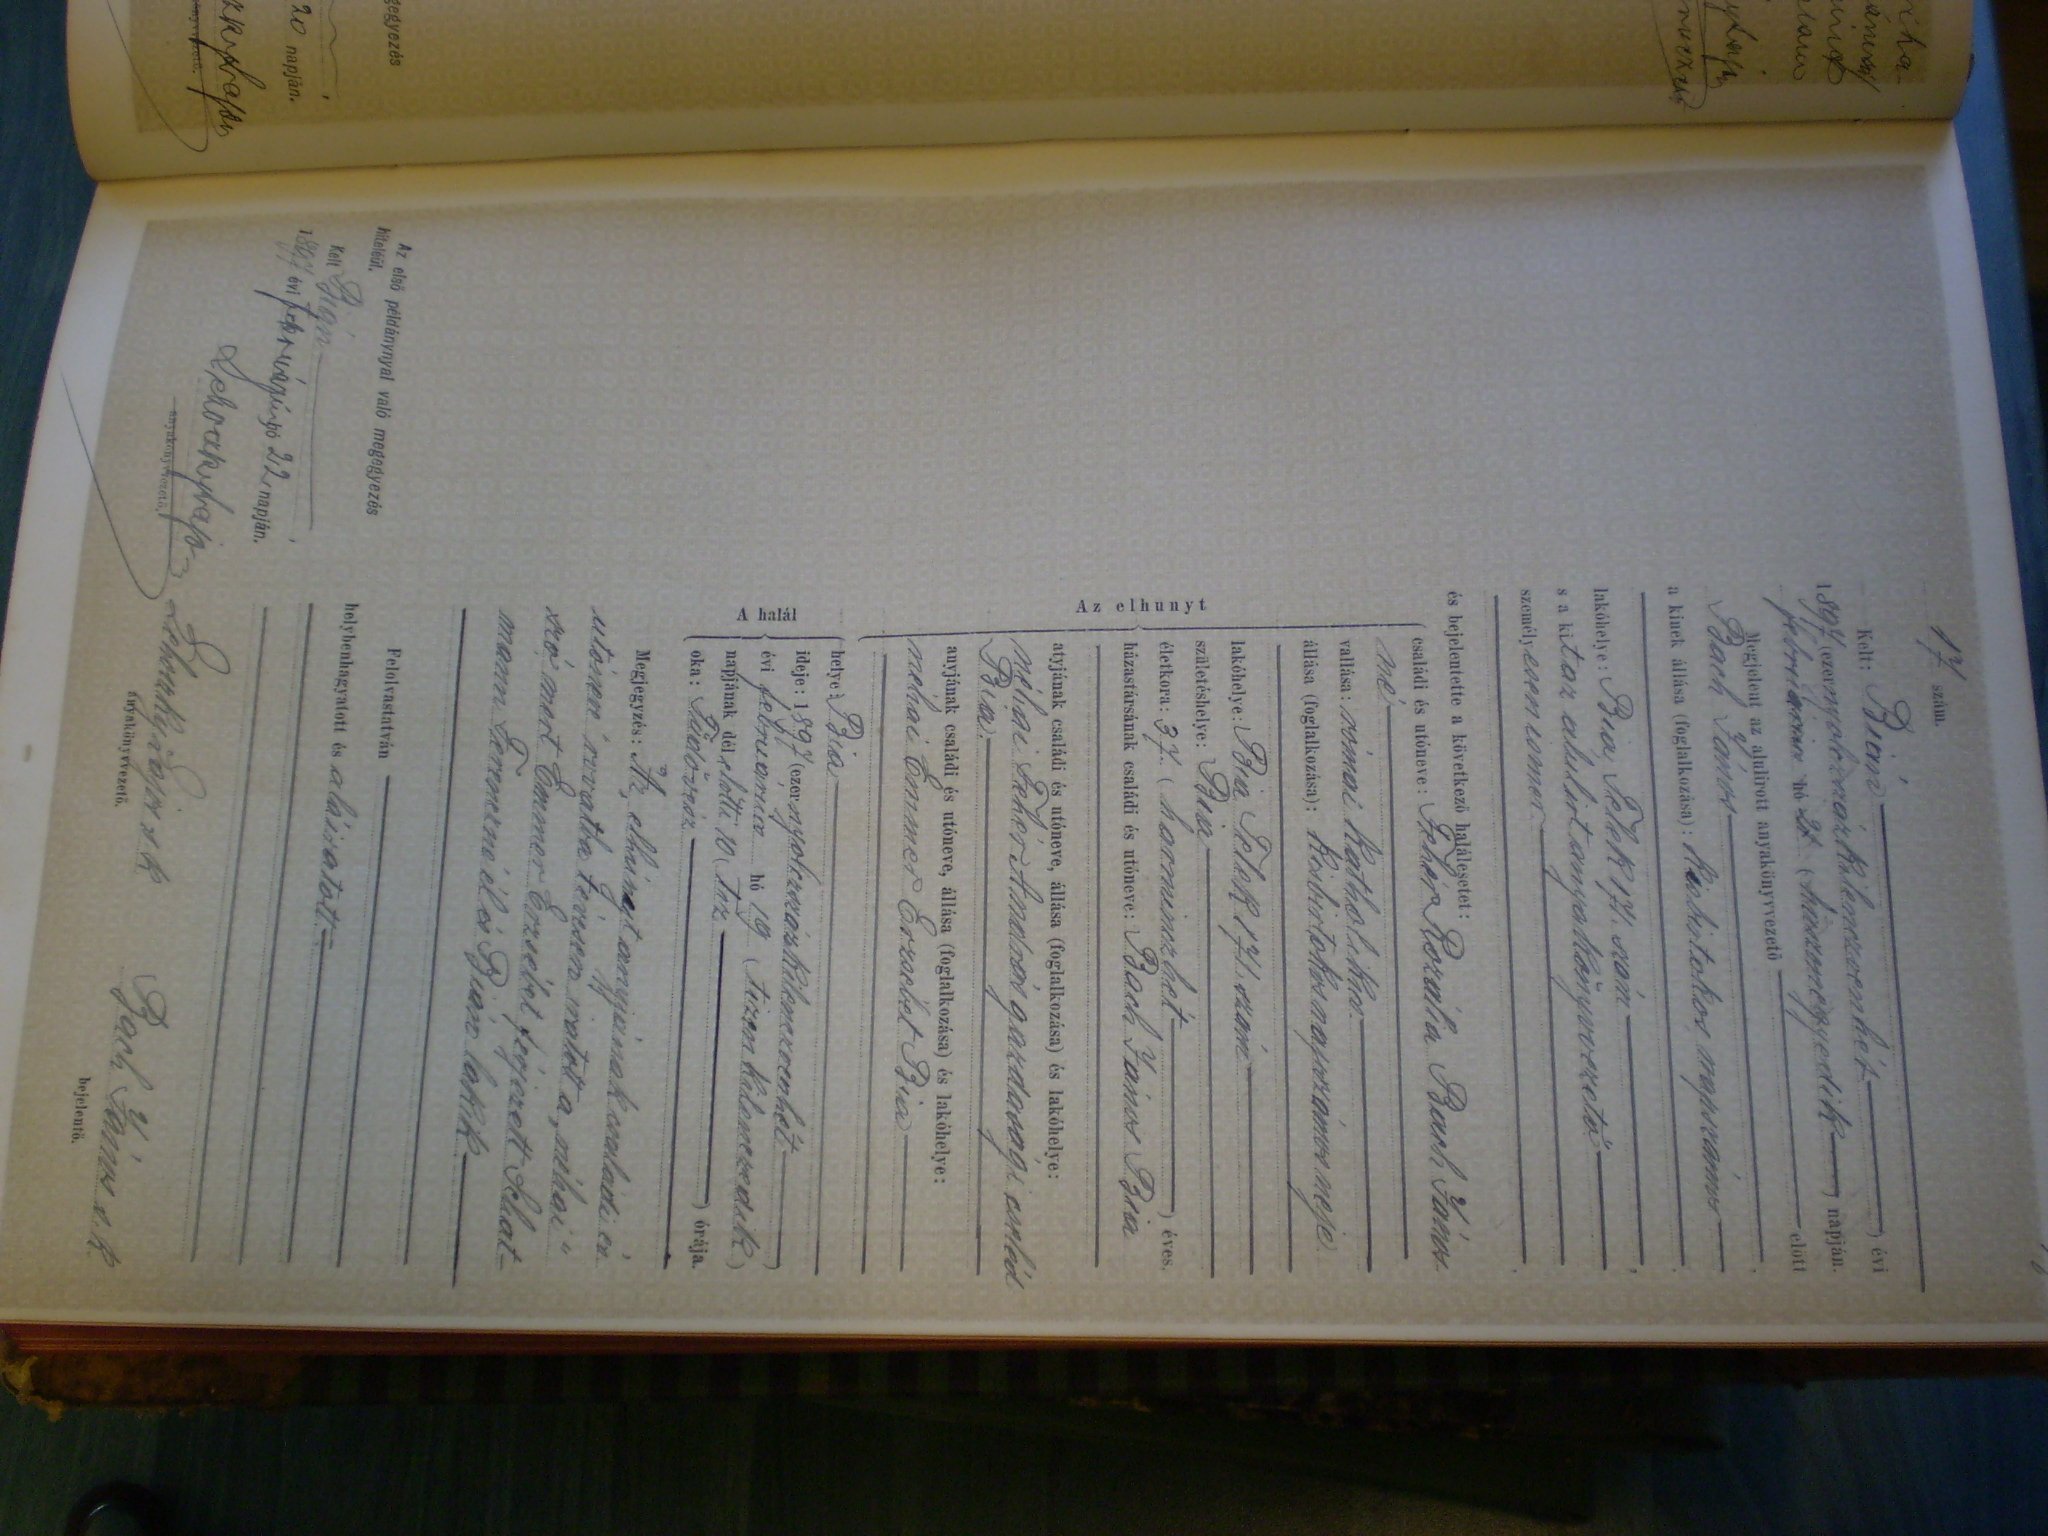 17 szám.
Kelt: Bián ) évi
1897 (ezernyolczszázkilenczvenhét
február hó 21 (huszonegyedik ) napján.
Megjelent az alulirott anyakönyvvezető előtt
Bach János
a kinek állása (foglalkozása): kisbirtokos napszámos
lakóhelye: Bia Telek 171. szám
s a kit az alulirt anyakönyvvezető
személyesen ismer
és bejelentette a következő halálesetet:
Az elhunyt
családi és utóneve: Fehér Rozália Bach János
né
vallása: római katholikus
állása (foglalkozása): Kisbirtokos napszámos neje
lakóhelye: Bia Telek 171. szám
születéshelye: Bia
életkora: 37. (harminczhét ) éves.
házastársának családi és utóneve: Bach János Bia
atyjának családi és utóneve, állása (foglalkozása) és lakóhelye:
néhai Fehér András gazdasági cseléd
Bia
anyjának családi és utóneve, állása (foglalkozása) és lakóhelye:
néhai Emmer Erzsébet Bia
A halál
helye: Bia
ideje: 1897 (ezernyolczszázkilenczvenhét )
évi február hó 19 (tizenkilenczedik )
napjának dél előtti 10 (tiz ) órája.
oka: Tüdővész
Megjegyzés: Az elhunyt anyjának családi és
utóneve rovatba tévesen iratott a „néhai"
szó, mert Emmer Erzsébet férjezett Schat-
mann Ferenczné él és Bián lakik
Felolvastatván
helybenhagyatott és aláiratott.
anyakönyvvezető.
Bach János s. k.
bejelentő.
Az első példánynyal való megegyezés
hiteléül.
Kelt Bián
1897 évi február hó 22 napján.
anyakönyvvezető.
egyezés
20 napján.